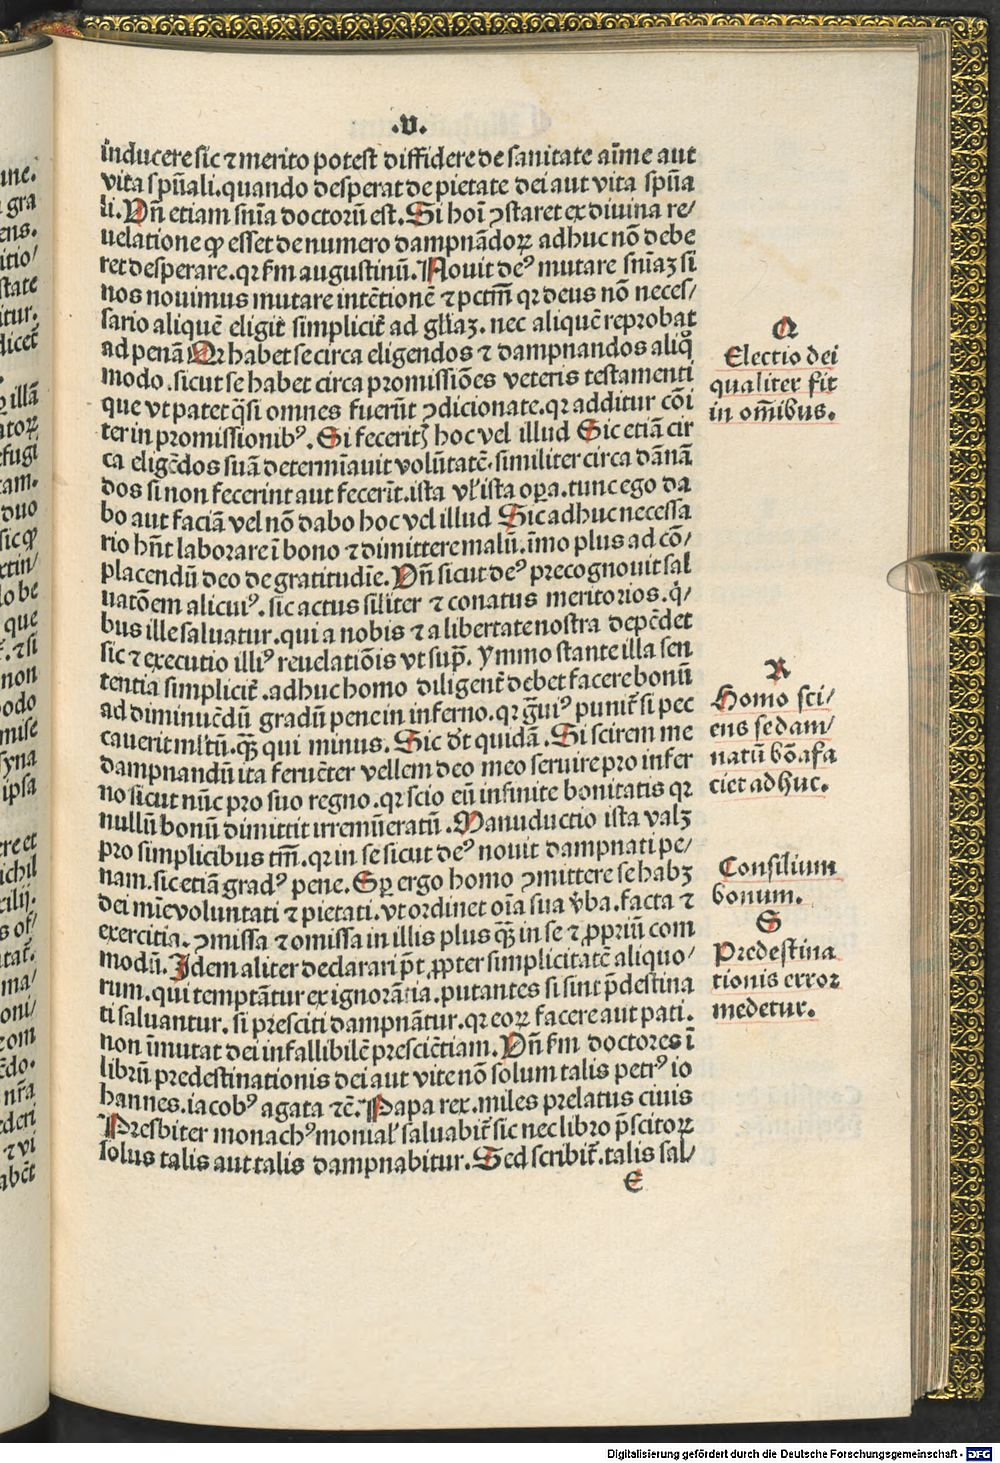 .V.
inducere sic ⁊ merito potest diffidere de sanitate aīme aut
vita spūali. quando desperat de pietate dei aut vita spūa
li. Vñ etiam snīa doctorū est. Si hoī ꝯstaret ex diuina re/
uelatione ꝙ esset de numero dampnādoꝝ adhuc nō debe
ret desperare. qꝛ fm augustinū. Nouit deꝰ mutare snīaꝫ si
nos nouimus mutare intētionē ⁊ pctm̄ qꝛ deus nō neces/
sario aliquē eligit̄ simplicit̄ ad glīaꝫ. nec aliquē reprobat
ad penā Qꝛ habet se circa eligendos ⁊ dampnandos aliq̊
modo. sicut se habet circa promissiōes veteris testamenti
que vt patet q̄si omnes fuerūt ꝯdicionate. qꝛ additur cōi
ter in promissionibꝰ. Si fecerit̄ hoc vel illud Sic etiā cir
ca eligēdos suā determīauit volūtatē. similiter circa dānā
dos si non fecerint aut fecerīt. ista vl̓ ista oꝑa. tunc ego da
bo aut faciā vel nō dabo hoc vel illud Sic adhuc necessa
rio hn̄t laborare ī bono ⁊ dimittere malū. īmo plus ad cō/
placendū deo de gratitudīe. Vñ sicut deꝰ precognouit sal
uatōem alicuiꝰ. sic actus siliter ⁊ conatus meritorios. q̄/
bus ille saluatur. qui a nobis ⁊ a libertate nostra depēdet
sic ⁊ executio illiꝰ reuelatiōis vt sup̄. Ymmo stante illa sen
tentia simplicit̄. adhuc homo diligent̄ debet facere bonū
ad diminuēdū gradū pene in inferno. qꝛ g̊uiꝰ punit̄ si pec
cauerit ml̓tū. qꝫ̄ qui minus. Sic dt̄ quidā. Si scirem me
dampnandū ita feruēter vellem deo meo seruire pro infer
no sicut nūc pro suo regno. qꝛ scio eū infinite bonitatis qꝛ
nullū bonū dimittit irremūeratū. Manuductio ista valꝫ
pro simplicibus tm̄. qꝛ in se sicut deꝰ nouit dampnati pe/
nam. sic etiā gradꝰ pene. Sꝑ ergo homo ꝯmittere se habꝫ
dei mīe voluntati ⁊ pietati. vt ordinet oīa sua v̄ba. facta ⁊
exercitia. ꝯmissa ⁊ omissa in illis plus qꝫ̄ in se ⁊ ꝓpriū com
modū. Idem aliter declarari p̄t ꝓpter simplicitatē aliquo/
rum. qui temptātur ex ignorātia. putantes si sint p̄destina
ti saluantur. si presciti dampnātur. qꝛ eoꝝ facere aut pati.
non īmutat dei infallibilē presciētiam. Vñ fm doctores ī
librū predestinationis dei aut vite nō solum talis petrꝰ io
hannes. iacobꝰ agata ⁊c̄. Papa rex. miles prelatus ciuis
Presbiter monachꝰ monial̓ saluabit̄ sic nec libro p̄scitoꝝ
solus talis aut talis dampnabitur. Sed scribit̄. talis sal/
E
Q
Electio dei
qualiter fit
in om̄ibus.
R
Homo sci/
ens se dam/
natū bōa fa
ciet adhuc.
Consilium
bonum.
S
Predestina
tionis error
medetur.
Digitalisierung gefördert durch die Deutsche Forschungsgemeinschaft - DFG